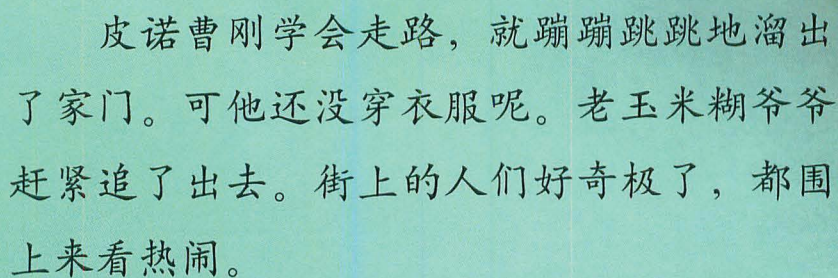 皮诺曹刚学会走路，就蹦蹦跳跳地溜出
了家门。可他还没穿衣服呢。老玉米糊爷爷
赶紧追了出去。街上的人们好奇极了，都围
上来看热闹。